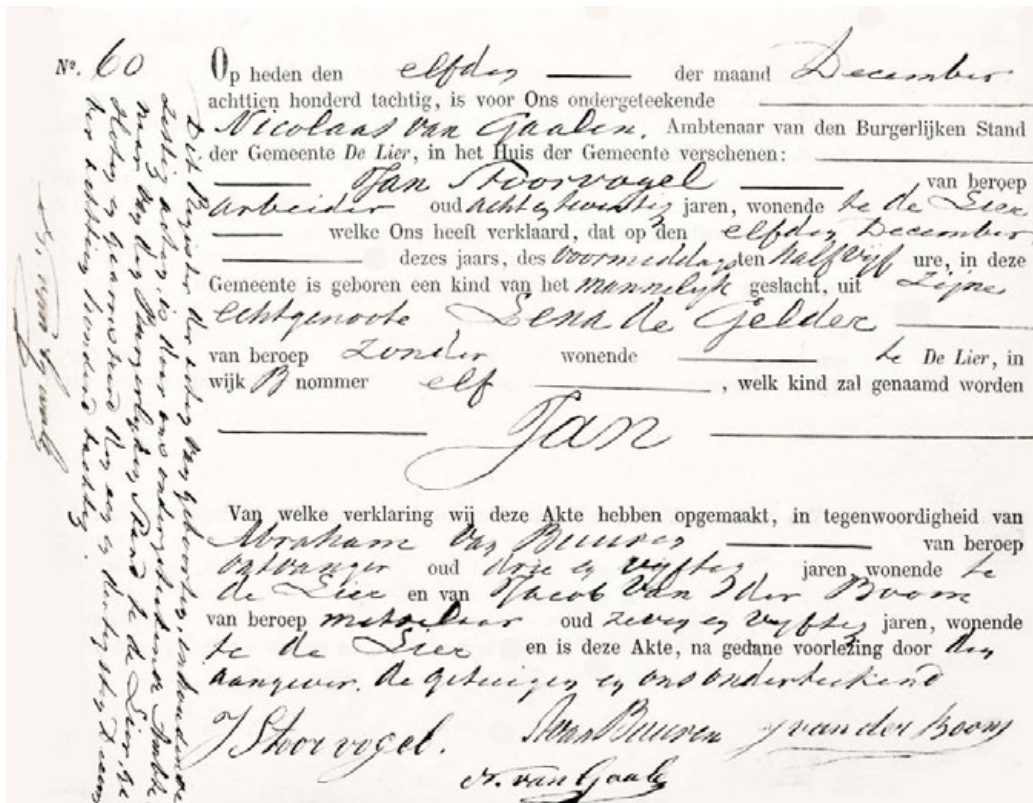 No. 60
Op heden den elfden der maand December
achttien honderd tachtig, is voor Ons ondergeteekende
Nicolaas van Gaalen, Ambtenaar van den Burgerlijken Stand
der Gemeente De Lier, in het Huis der Gemeente verschenen:
Jan Stoorvogel van beroep
arbeider oud acht en twintig jaren, wonende te de Lier
welke Ons heeft verklaard, dat op den elfden December
dezes jaars, des voormiddags ten half vijf ure, in deze
Gemeente is geboren een kind van het mannelijk geslacht, uit zijne
echtgenoote Lena de Gelder
van beroep zonder wonende te De Lier, in
wijk B nommer elf, welk kind zal genaamd worden
Jan
Van welke verklaring wij deze Akte hebben opgemaakt, in tegenwoordigheid van
Abraham van Buuren van beroep
ontvanger oud drie en vijftig jaren, wonende te
de Lier en van Jacob van der Boom
van beroep metselaar oud zeven en vijftig jaren, wonende
te de Lier en is deze Akte, na gedane voorlezing door den
aangever, de getuigen en ons onderteekend
J Stoorvogel. A van Buuren J van der Boom
N. van Gaalen
Dit Register der acten van geboorten, inhoudende
zestig acten, is door ons ondergeteekende Ambte
naar van den Burgerlijken Stand te de Lier, ge
sloten en gearresteerd den een en dertigsten Decem
ber achttien honderd tachtig
N. van Gaalen